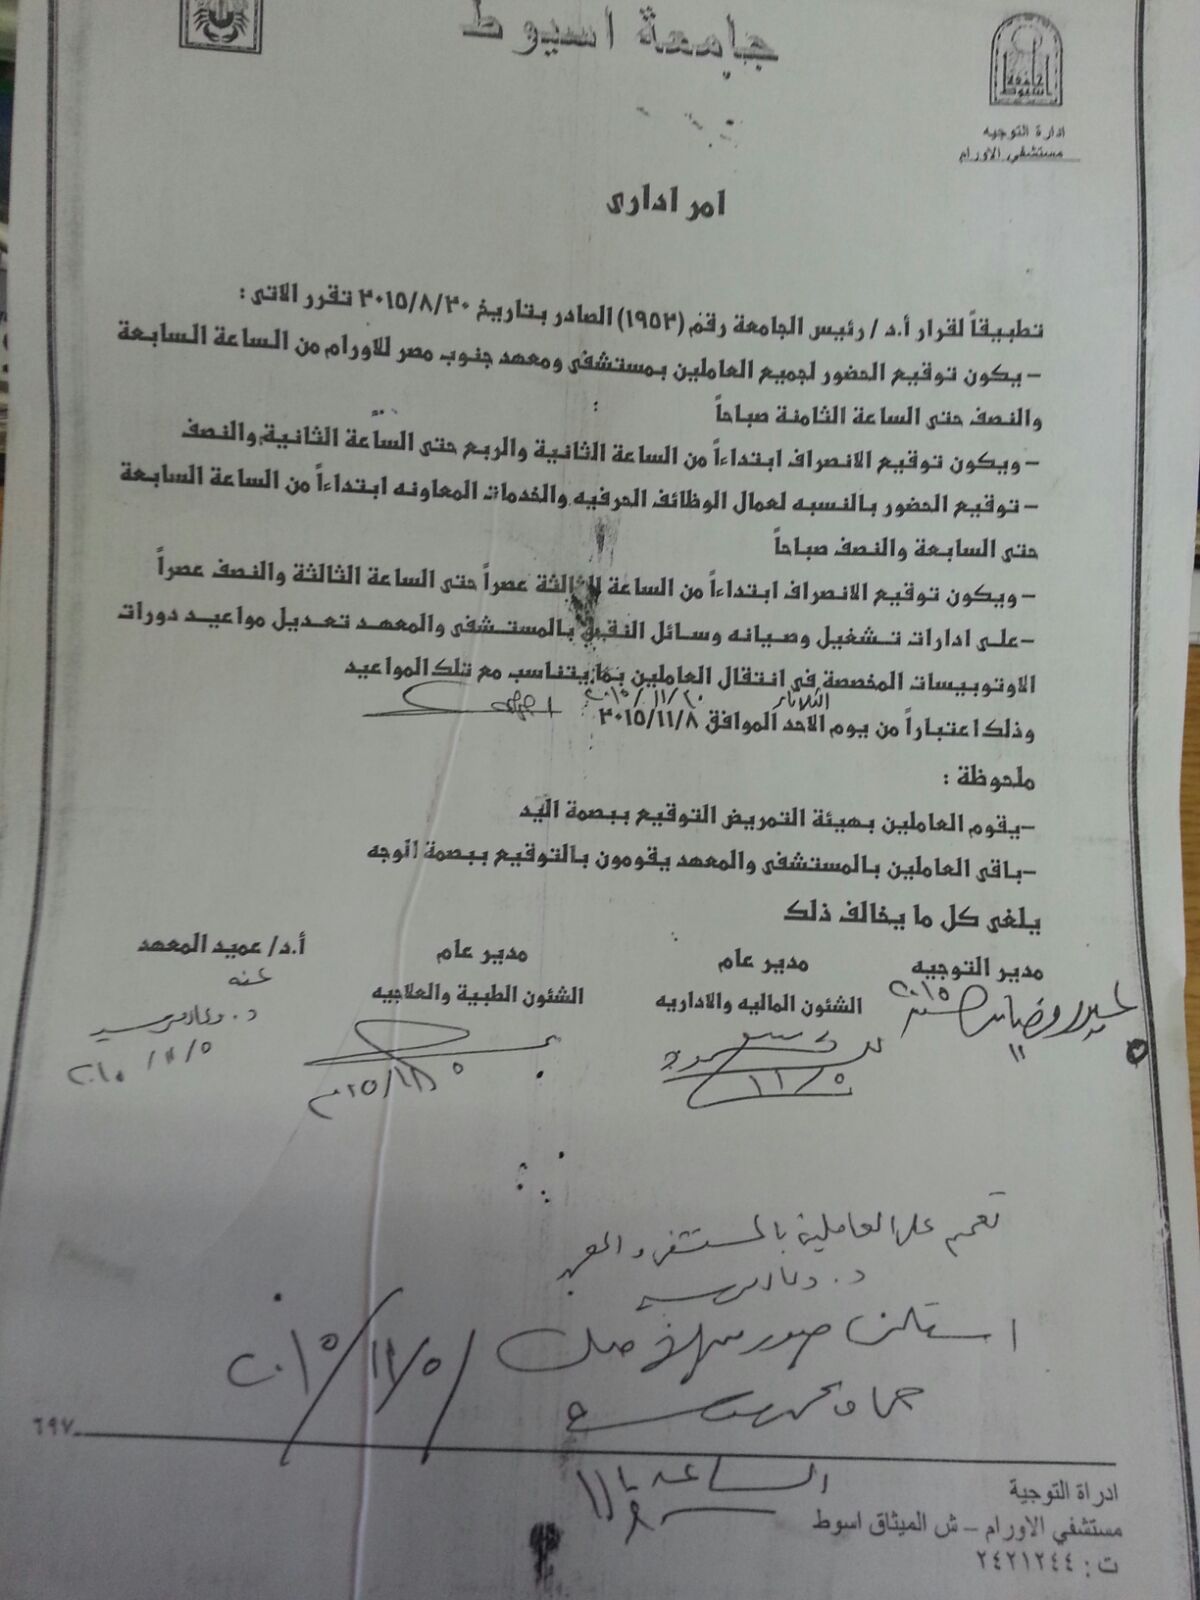 جامعة اسيوط
ادارة التوجيه
مستشفي الاورام
امر ادارى
تطبيقاً لقرار أ.د / رئيس الجامعة رقم (١٩٥٣) الصادر بتاريخ ٢٠١٥/٨/٣٠ تقرر الاتى :
– يكون توقيع الحضور لجميع العاملين بمستشفى ومعهد جنوب مصر للاورام من الساعة السابعة
والنصف حتى الساعة الثامنة صباحاً
– ويكون توقيع الانصراف ابتداءاً من الساعة الثانية والربع حتى الساعة الثانية والنصف
– توقيع الحضور بالنسبه لعمال الوظائف الحرفيه والخدمات المعاونه ابتداءاً من الساعة السابعة
حتى السابعة والنصف صباحاً
– ويكون توقيع الانصراف ابتداءاً من الساعة الثالثة عصراً حتى الساعة الثالثة والنصف عصراً
–على ادارات تشغيل وصيانه وسائل النقل بالمستشفى والمعهد تعديل مواعيد دورات
الاوتوبيسات المخصصة فى انتقال العاملين بما يتناسب مع تلك المواعيد
الثلاثاء ٢٠١٥/١١/١٠
وذلك اعتباراً من يوم الاحد الموافق ٢٠١٥/١١/٨
ملحوظة :
–يقوم العاملين بهيئة التمريض التوقيع ببصمة اليد
–باقى العاملين بالمستشفى والمعهد يقومون بالتوقيع ببصمة الوجه
يلغى كل ما يخالف ذلك
مدير التوجيه مدير عام مدير عام أ.د/ عميد المعهد
الشئون الماليه والاداريه الشئون الطبية والعلاجيه عنه
٢٠١٥/١١/٥
تعمم على العاملين بالمستشفى والمعهد
استلمت صورة من الأصل
٢٠١٥/١١/٥
٦٩٧
الساعة
ادراة التوجية
مستشفي الاورام – ش الميثاق اسوط
ت : ٢٤٢١٢٤٤